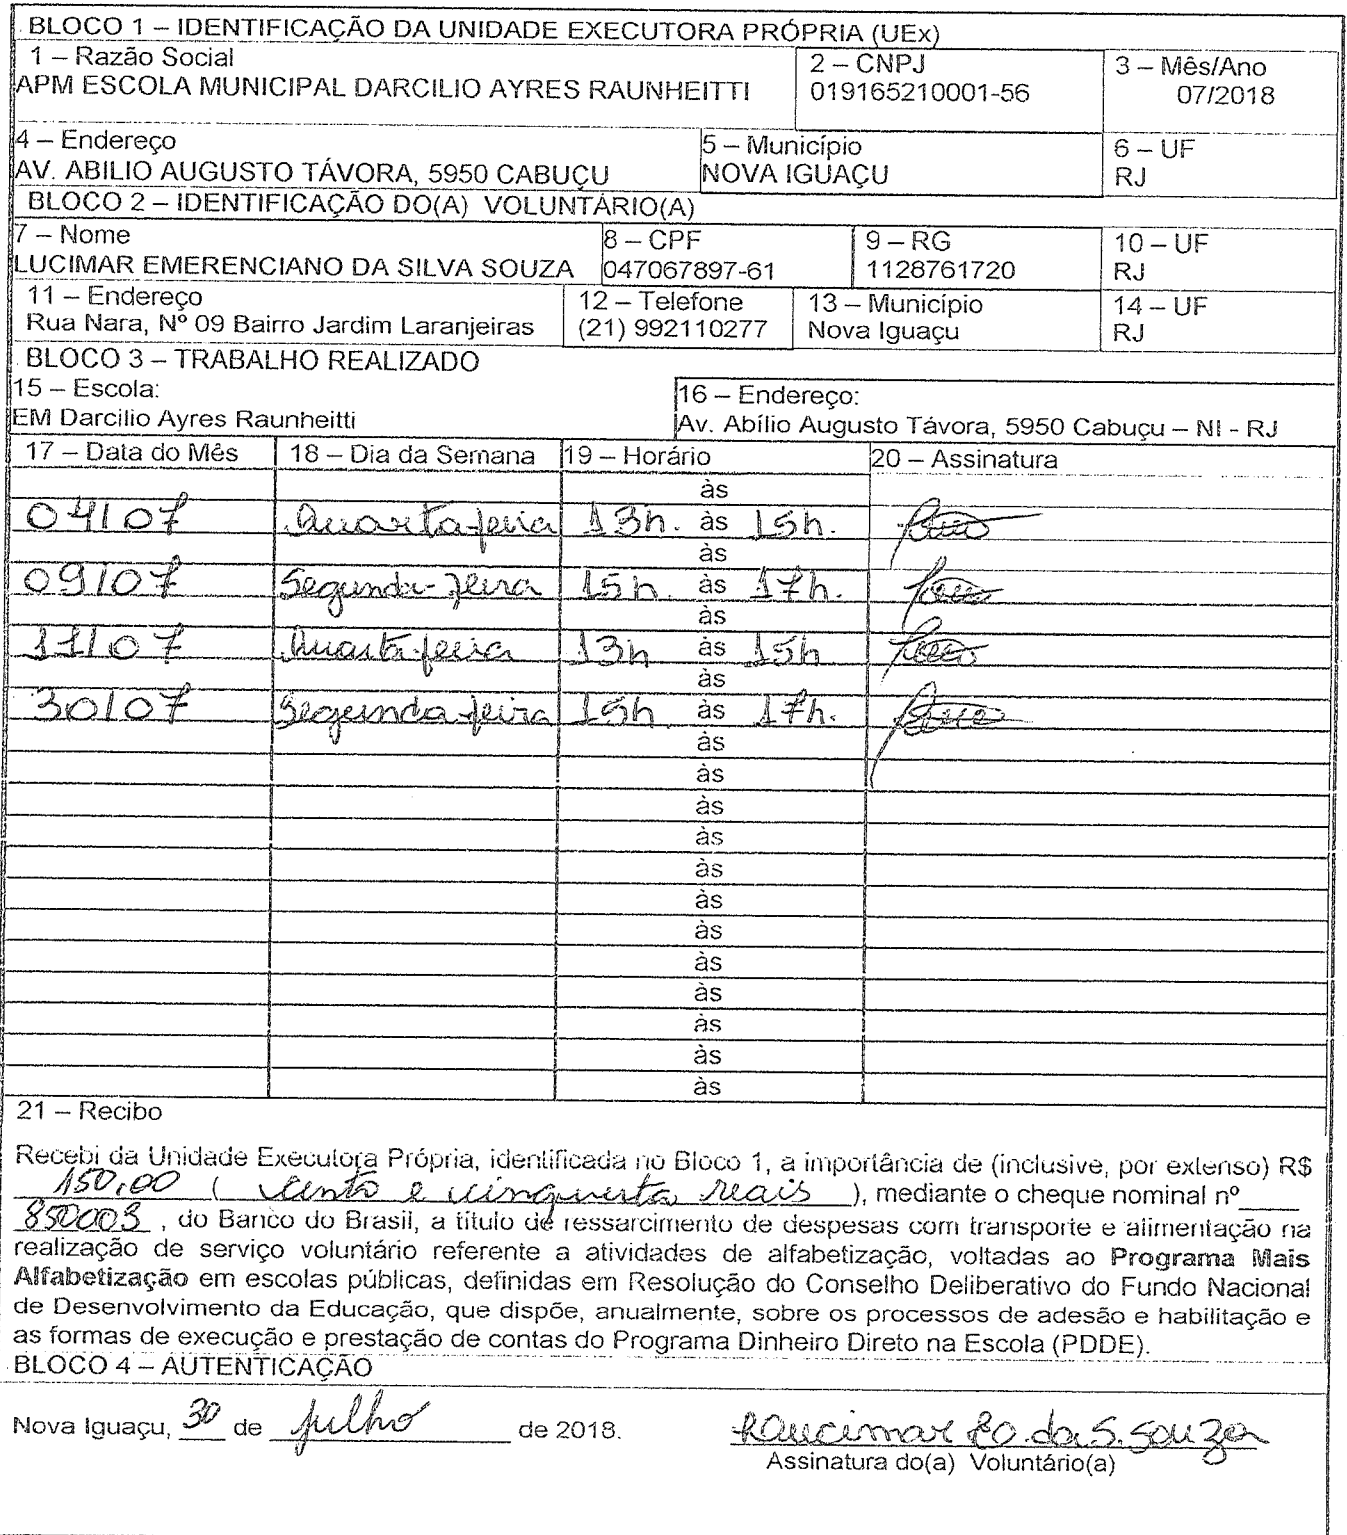 BLOCO 1 – IDENTIFICAÇÃO DA UNIDADE EXECUTORA PRÓPRIA (UEx)
1 – Razão Social
APM ESCOLA MUNICIPAL DARCILIO AYRES RAUNHEITTI
2 – CNPJ
019165210001-56
3 – Mês/Ano
07/2018
4 – Endereço
AV. ABILIO AUGUSTO TÁVORA, 5950 CABUÇU
5 – Município
NOVA IGUAÇU
6 – UF
RJ
BLOCO 2 – IDENTIFICAÇÃO DO(A) VOLUNTÁRIO(A)
7 – Nome
LUCIMAR EMERENCIANO DA SILVA SOUZA
8 – CPF
047067897-61
9 – RG
1128761720
10 – UF
RJ
11 – Endereço
Rua Nara, Nº 09 Bairro Jardim Laranjeiras
12 – Telefone
(21) 992110277
13 – Município
Nova Iguaçu
14 – UF
RJ
BLOCO 3 – TRABALHO REALIZADO
15 – Escola:
EM Darcilio Ayres Raunheitti
16 – Endereço:
Av. Abílio Augusto Távora, 5950 Cabuçu – NI - RJ
17 – Data do Mês 18 – Dia da Semana 19 – Horário 20 – Assinatura
às
04/07 Quarta-feira 13h. às 15h.
às
09/07 Segunda-feira 15h. às 17h.
às
11/07 Quarta-feira 13h às 15h
às
30/07 Segunda-feira 15h às 17h.
às
às
às
às
às
às
às
às
às
às
às
às
21 – Recibo
Recebi da Unidade Executora Própria, identificada no Bloco 1, a importância de (inclusive, por extenso) R$
150,00 ( cento e cinquenta reais ), mediante o cheque nominal nº
850003 , do Banco do Brasil, a título de ressarcimento de despesas com transporte e alimentação na
realização de serviço voluntário referente a atividades de alfabetização, voltadas ao Programa Mais
Alfabetização em escolas públicas, definidas em Resolução do Conselho Deliberativo do Fundo Nacional
de Desenvolvimento da Educação, que dispõe, anualmente, sobre os processos de adesão e habilitação e
as formas de execução e prestação de contas do Programa Dinheiro Direto na Escola (PDDE).
BLOCO 4 – AUTENTICAÇÃO
Nova Iguaçu, 30 de julho de 2018.
Lucimar E. da S. Souza
Assinatura do(a) Voluntário(a)